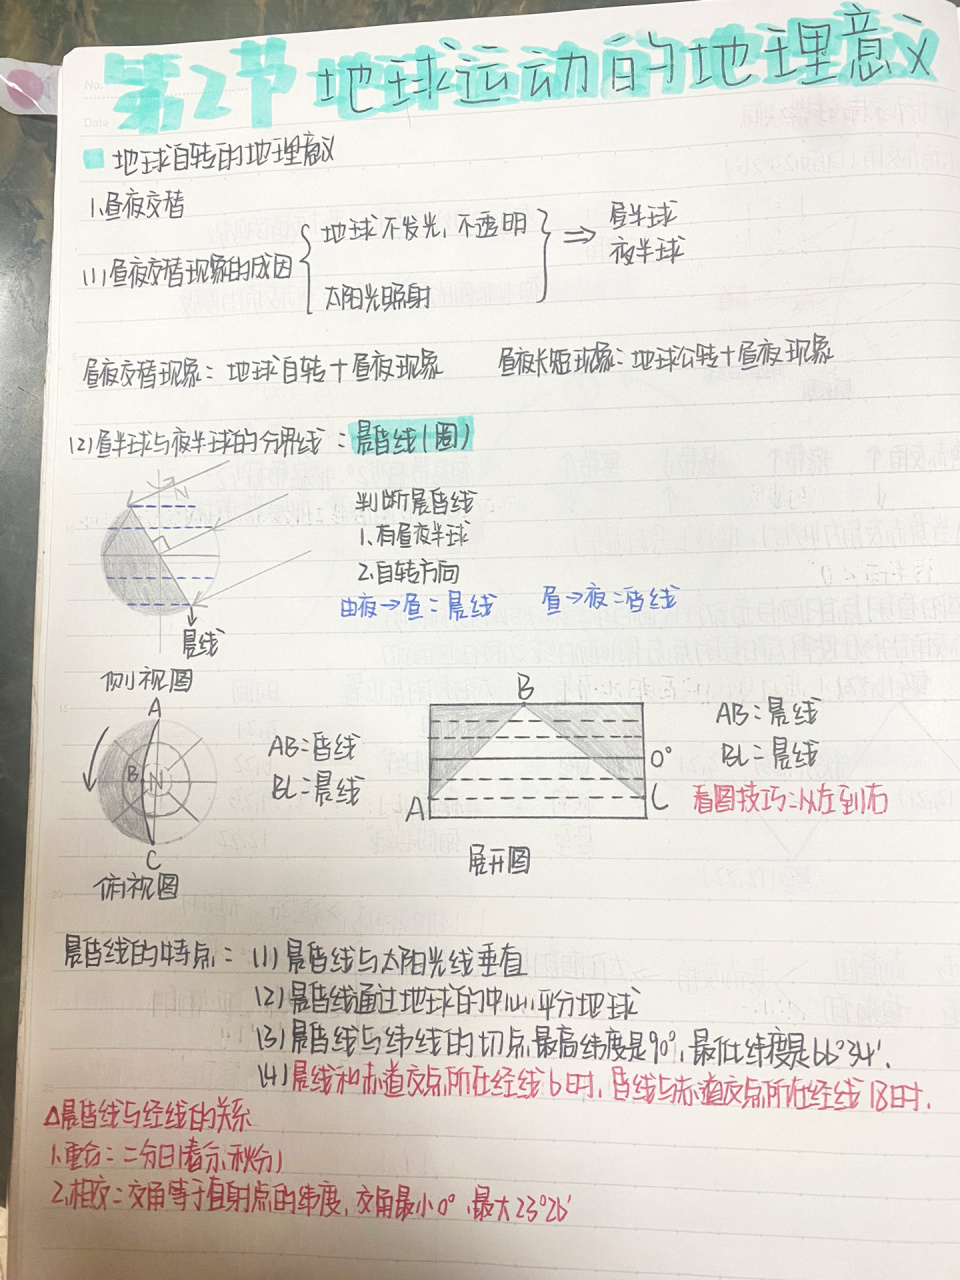 No.
Date
第2节 地球运动的地理意义
地球自转的地理意义
1.昼夜交替
(1)昼夜交替现象的成因
地球不发光,不透明
太阳光照射
⇒ 昼半球
夜半球
昼夜交替现象:地球自转+昼夜现象 昼夜长短现象:地球公转+昼夜现象
(2)昼半球与夜半球的分界线:晨昏线(圈)
N
判断晨昏线
1.有昼夜半球
2.自转方向
由夜→昼:晨线 昼→夜:昏线
晨线
侧视图
A
B N
C
俯视图
AB:昏线
BC:晨线
B
0°
A C
展开图
AB:晨线
BC:晨线
看图技巧:从左到右
晨昏线的特点:(1)晨昏线与太阳光线垂直
(2)晨昏线通过地球的中心,平分地球
(3)晨昏线与纬线的切点,最高纬度是90°,最低纬度是66°34′.
(4)晨线和赤道交点所在经线6时,昏线与赤道交点所在经线18时.
△晨昏线与经线的关系
1.重合:二分日(春分,秋分)
2.相交:交角等于直射点的纬度,交角最小0°,最大23°26′